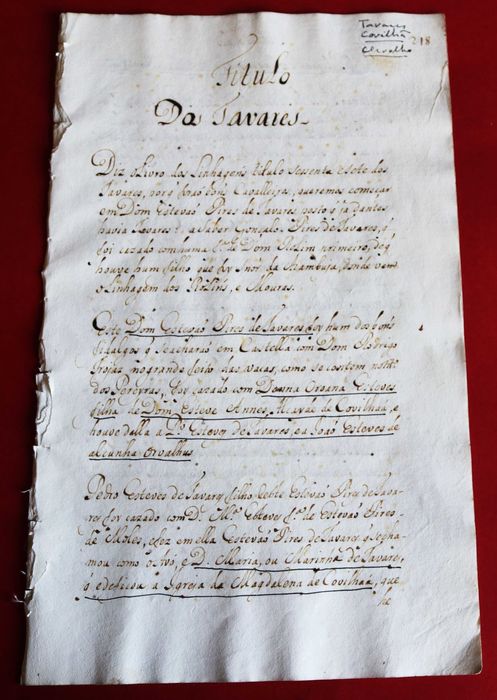 Tavares
Covilhã
Orvalho
218
Titulo
Dos Tavares
Diz o Livro dos Linhagens titulo sesenta e sete dos
Tavares, porq̃ forão bons Cavalleiros, queremos começar
em Dom Estevaõ Pires de Tavares posto q̃ ja dantes
havia Tavares a saber Gonçalo Pires de Tavares, q̃
foi cazado com huma fª. de Dom Rolim primeiro, de q̃
houve hum filho que foy Snõr da Azambuja, donde vem
o Linhagem dos Rolins, e Mouras.
Este Dom Estevaõ Pires de Tavares foy hum dos bons
fidalgos q̃ se acharaõ em Castella com Dom Rodrigo
Frojas no grande feito das vacas, como se contem no ttº.
dos Pereyras, foy cazado com Donna Ouroana Esteves
filha de Dom Esteve Annes, Alcayde de Covilhaã, e
houve della a Pº. Esteves de Tavares, e a Joaõ Esteves de
alcunha orvalhus
Pedro Esteves de Tavares filho deste Estevaõ Pires de Tava-
res foy cazado com D. Mª. Esteves fª. de Estevaõ Pires
de Moles, e fez em ella Estevaõ Pires de Tavares q̃ se cha-
mou como o Avó, e D. Maria, ou Marinha de Tavares,
q̃ edeficou a Igreja da Magdalena de Covilhaã, que
he